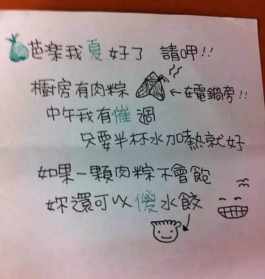 芭樂我夏好了 請呷!!
櫥房有肉粽 ←在電鍋旁!!
中午我有催過
只要半杯水加熱就好
如果一顆肉粽不會飽
妳還可以傻水餃